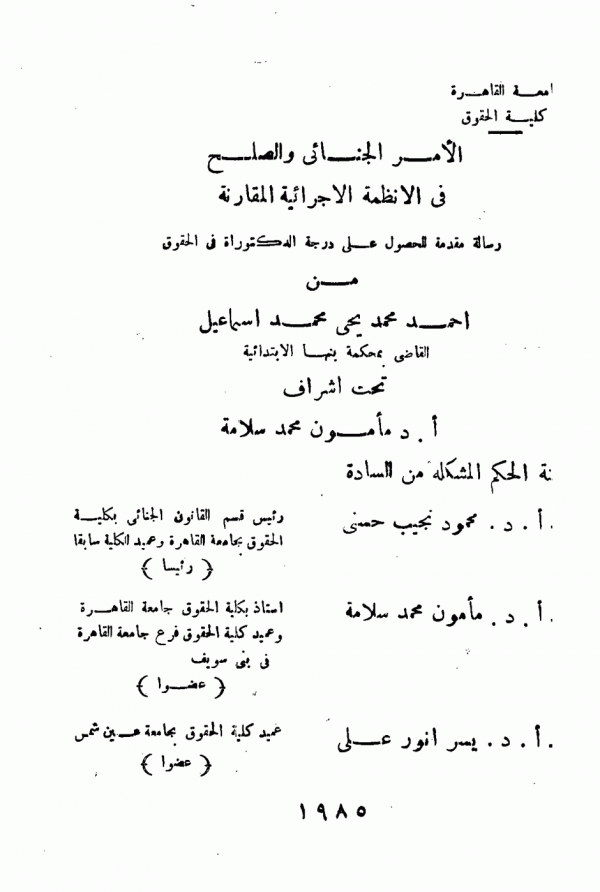 امعة القاهرة
كلية الحقوق
الأمر الجنائى والصلح
فى الانظمة الاجرائية المقارنة
رسالة مقدمة للحصول على درجة الدكتوراة فى الحقوق
من
احمد محمد يحى محمد اسماعيل
القاضى بمحكمة بنها الابتدائية
تحت اشراف
أ . د مأمون محمد سلامة
نة الحكم المشكله من السادة
أ . د . محمود نجيب حسنى
رئيس قسم القانون الجنائى بكلية
الحقوق بجامعة القاهرة وعميد الكلية سابقا
( رئيسا )
أ . د . مأمون محمد سلامة
استاذ بكلية الحقوق جامعة القاهرة
وعميد كلية الحقوق فرع جامعة القاهرة
فى بنى سويف
( عضوا )
أ . د . يسر انور على
عميد كلية الحقوق بجامعة عين شمس
( عضوا )
١٩٨٥